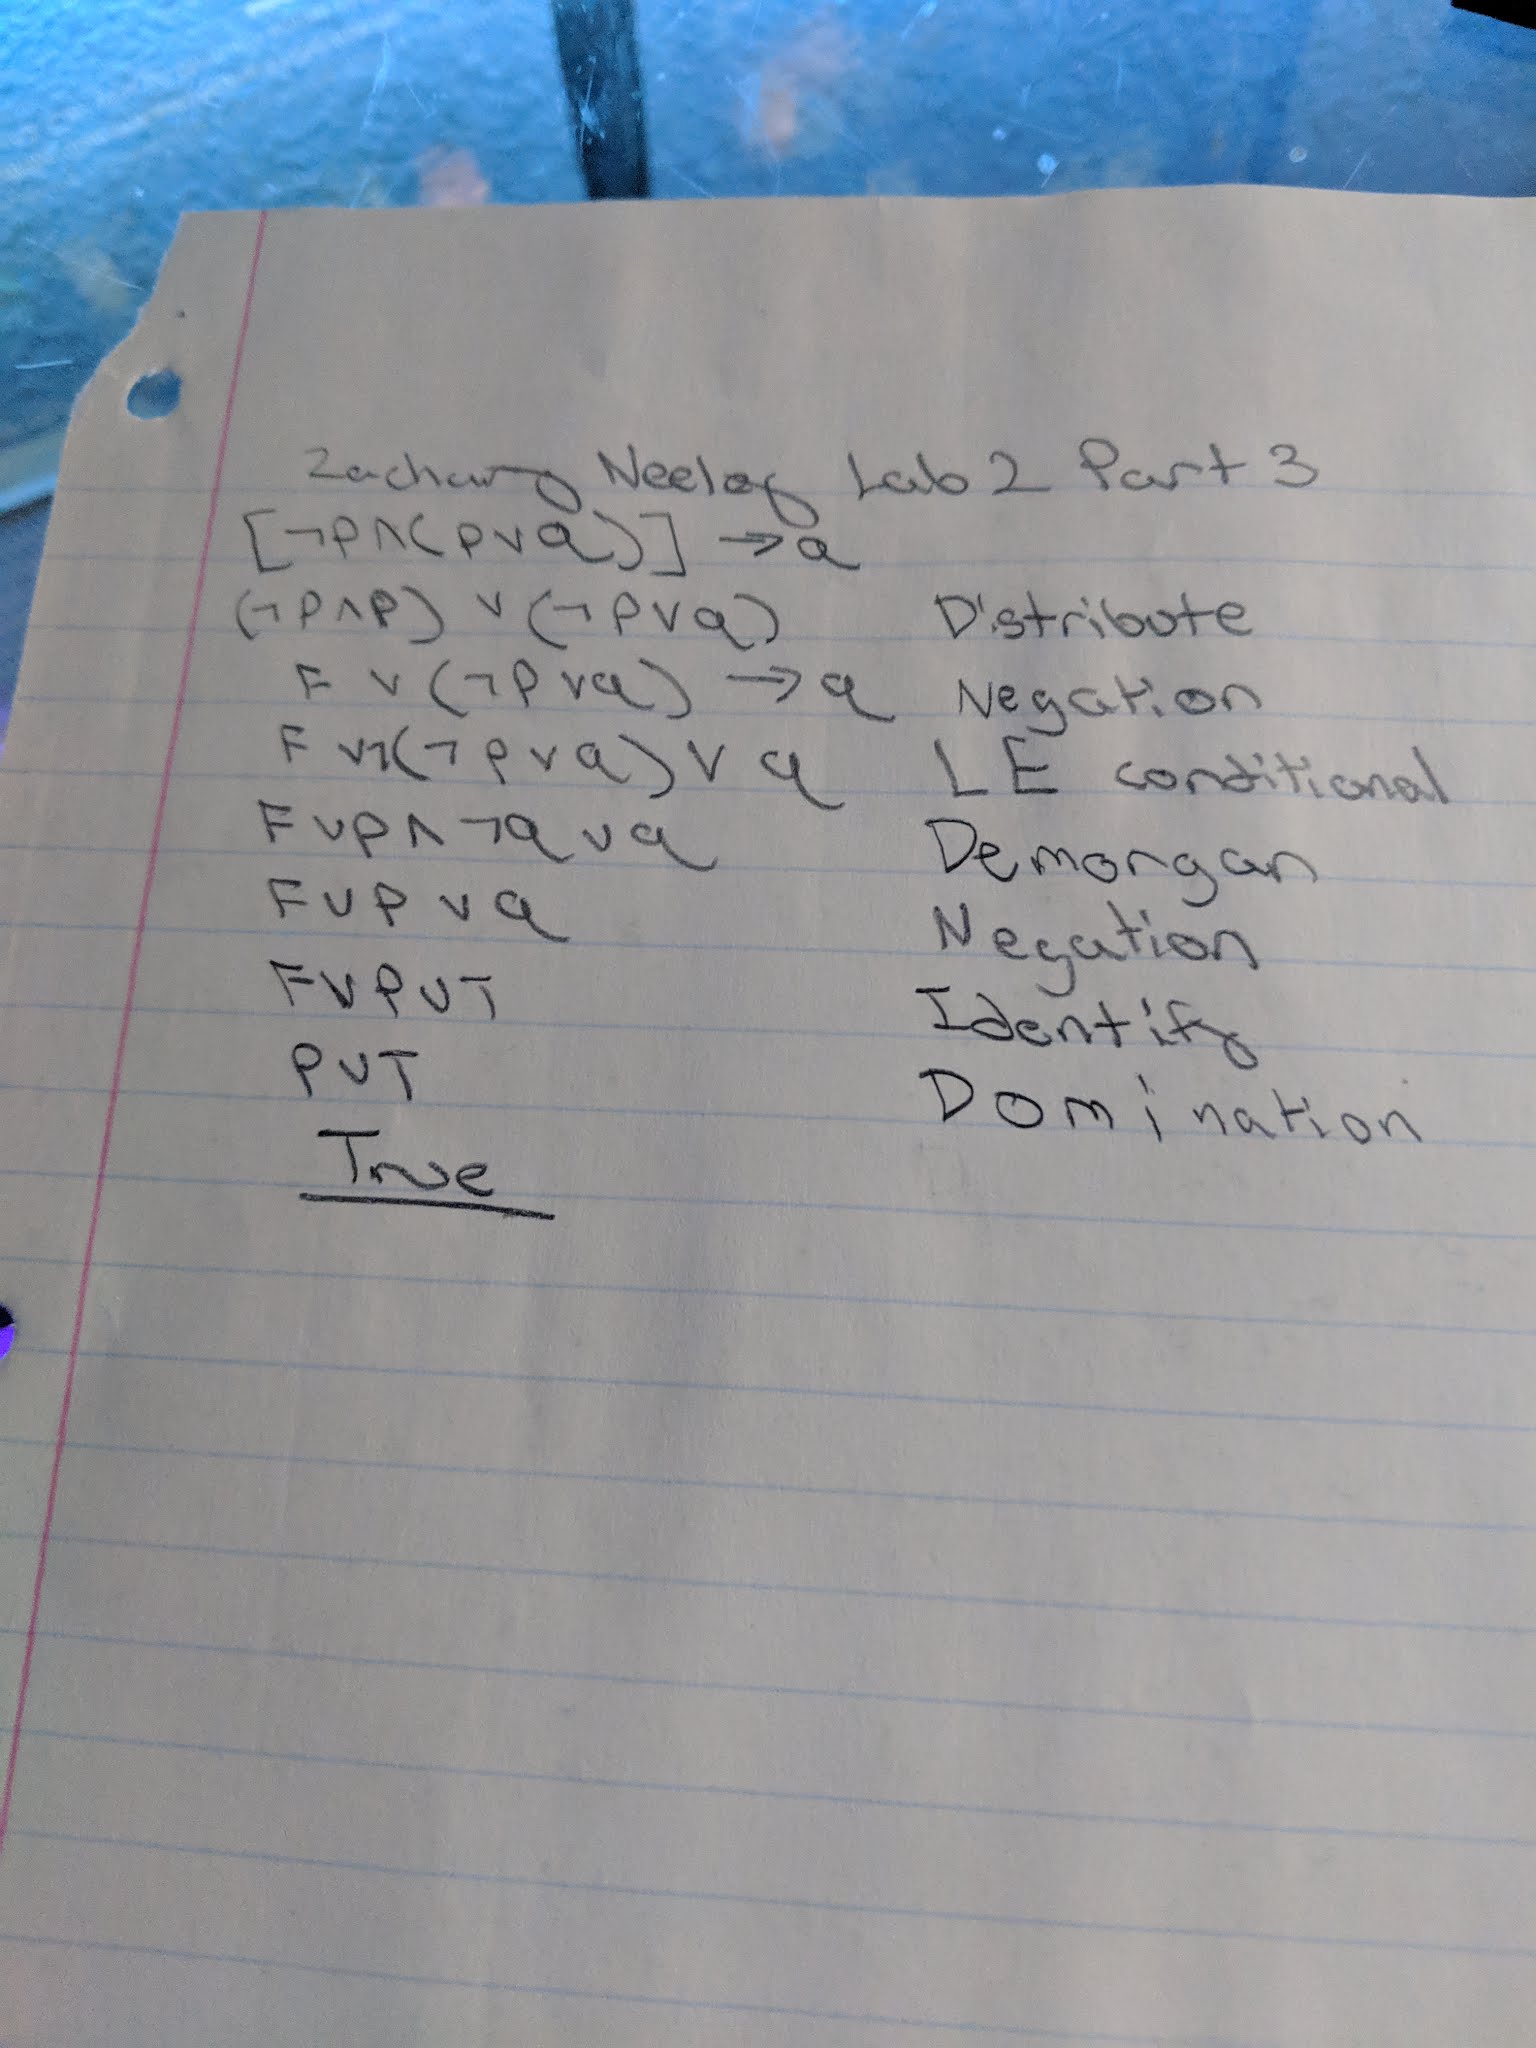 Zachary Neeley Lab 2 Part 3
[¬p∧(p∨q)] → q
(¬p∧p) ∨ (¬p∨q) Distribute
F ∨ (¬p∨q) → q Negation
F ∨¬(¬p∨q) ∨ q LE conditional
F∨p∧¬q∨q Demorgan
F∨p∨q Negation
F∨p∨T Identify
p∨T Domination
True